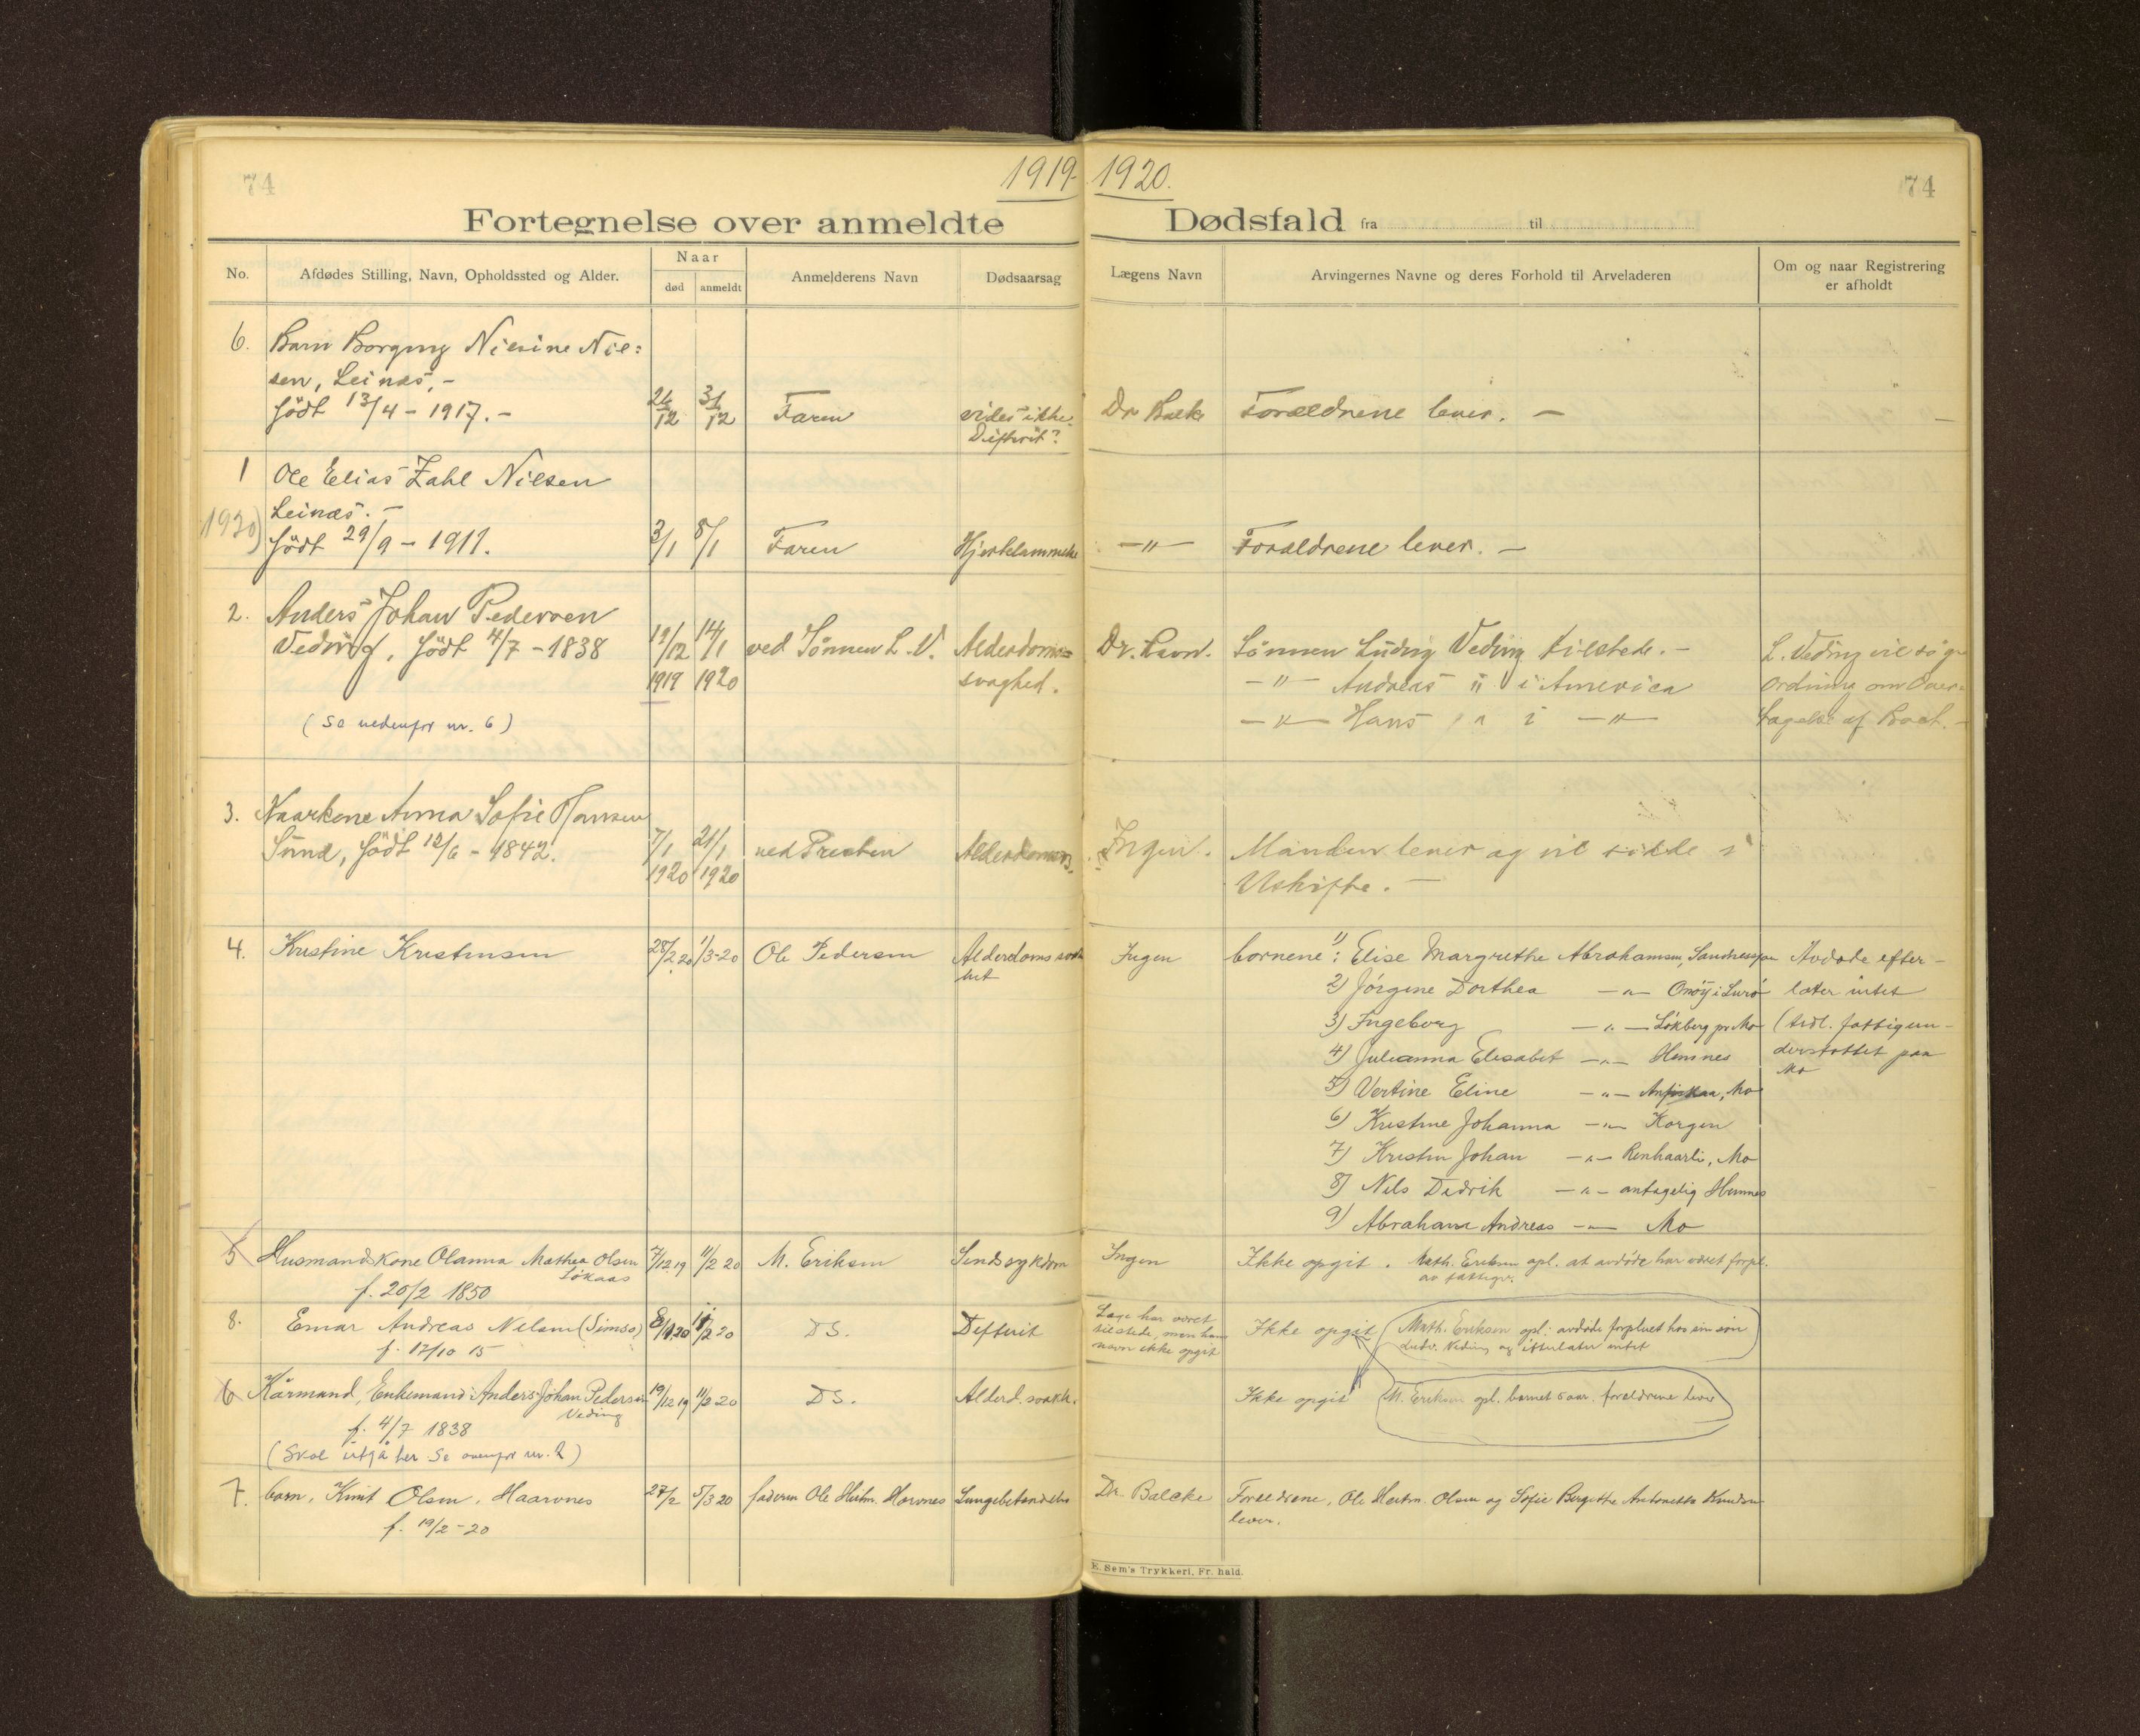 74
1919-
1920.
74
Fortegnelse over anmeldte
Dødsfald fra til
No.
Afdødes Stilling, Navn, Opholdssted og Alder.
Naar
død
anmeldt
Anmelderens Navn
Dødsaarsag
Lægens Navn
Arvingernes Navne og deres Forhold til Arveladeren
Om og naar Registrering
er afholdt
6. Barn Borgny Nilsine Niel=
sen, Leinæs, -
født 13/4 - 1917. - 26/12 31/12 Faren vides ikke. Dr Balke Forældrene lever. —
Difterit?
1 Ole Elias Zahl Nilsen
Leinæs. -
1920) født 29/9 - 1911. 3/1 8/1 Faren —"— Forældrene lever. —
2. Anders Johan Pedersen
Veding, født 4/7 - 1838 19/12 14/1 ved Sønnen L. V. Alderdoms= Sønnen Ludvig Veding tilstede. - L. Veding vil søge
1919 1920 svaghed. —"— Andreas " i America Ordning om Over=
—"— Hans " i —"— tagelse af Boet. -
(Se nedenfor nr. 6)
3. Anna Sofie Hansen
Sund, født 12/6 - 1842. 7/1 21/1 ved Presten Alderdoms. Ingen. Manden lever og vil sidde i
1920 1920 Uskifte. —
4. Kristine Kristensen 28/2 20 1/3-20 Ole Pedersen Ingen børnene: 1) Elise Margrethe Abrahamsen, Avdøde efter-
2) Jørgine Dorthea —"— Onøy i Lurø later intet
3) Ingeborg —"— Løkberg pr Mo (tidl. fattigun-
4) Julianna Elisabet —"— Hemnes derstøttet paa
Mo
5) Vertine Eline —"— Mo
6) Kristine Johanna —"— Korgen
7) Kristen Johan —"— Renhaarli, Mo
8) Nils Dedrik —"— antagelig Hemnes
9) Abraham Andreas —"— Mo
5 Husmandskone Olanna Mathea Olsen 7/12 19 11/2 20 M. Eriksen Sindssykdom Ingen Ikke opgit. Math. Eriksen opl. at avdøde har været forpl.
Løkaas av fattigv.
f. 20/2 1850
8. Einar Andreas Nilsen (Simsø) 11/2 20 DS. Difterit Læge har været
tilstede, men hans
navn ikke opgit
Ikke opgit (Math. Eriksen opl: avdøde forpleiet hos sin søn
Ludv. Veding og efterlater intet
f. 12/10 15
6 Kårmand, Enkemand Anders Johan Pedersen 19/12 19 11/2 20 DS. Alderd. svakh. Ikke opgit (M. Eriksen opl. barnet 5 aar. forældrene lever
Veding
f. 4/7 1838
(Skal utgå her Se ovenfor nr. 2)
7. barn, Knut Olsen, Haarvnes 27/2 5/3 20 faderen Ole Hartm. Horvnes Lungebetændelse Dr. Balcke Foreldrene, Ole Hartm. Olsen og Sofie Bergitte Antonette Knudsen
lever.
f. 19/2-20
E. Sem's Trykkeri, Fr. hald.